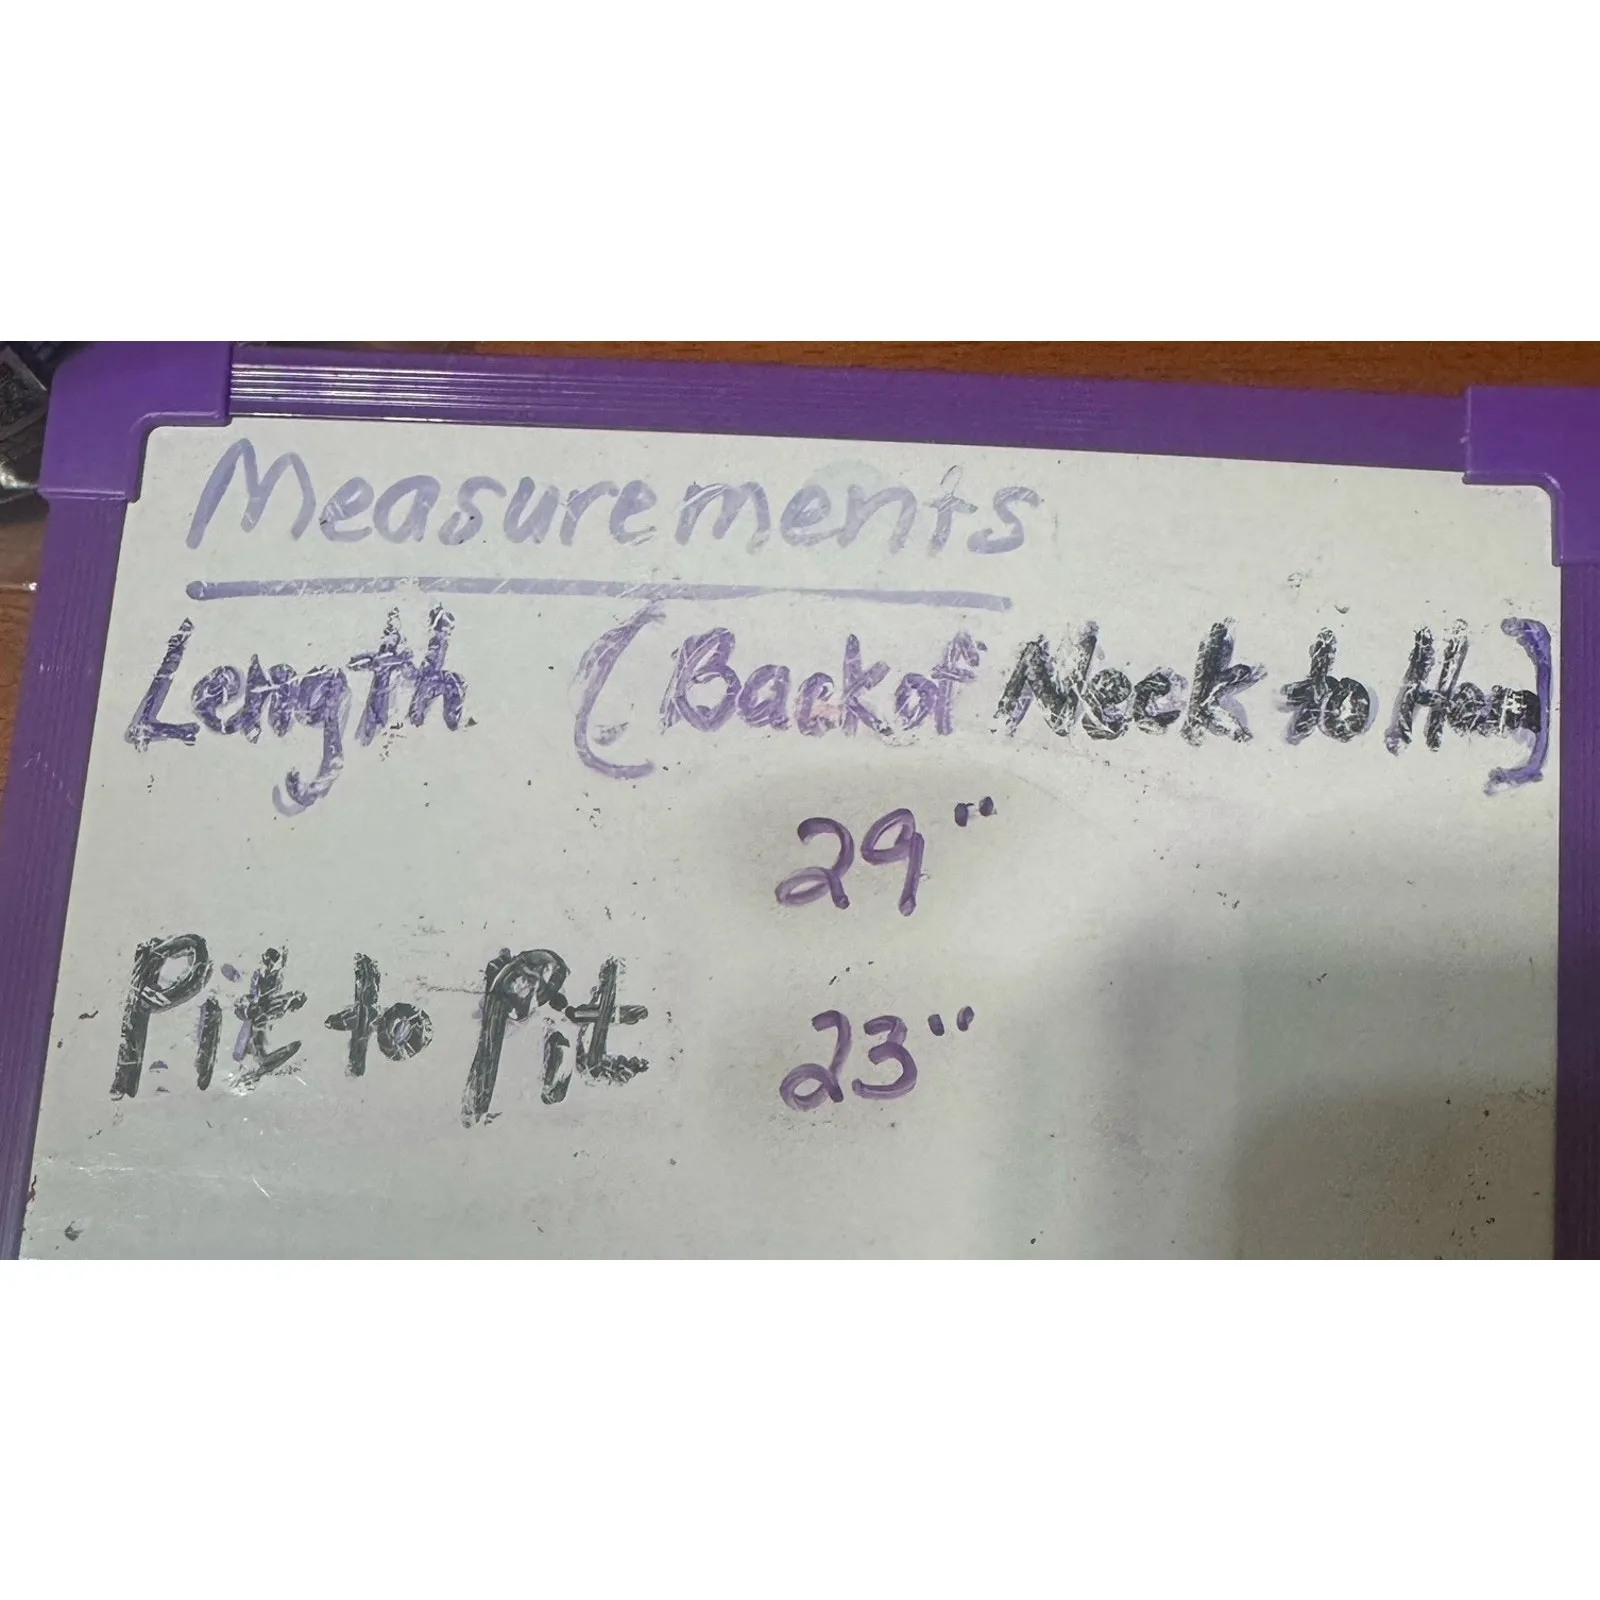 Measurements
Length (Back of Neck to Hem)
29"
Pit to Pit 23"